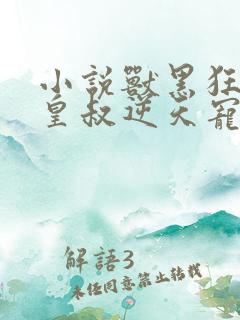 小說獸黑狂
皇叔逆天寵
解語3
未任同意禁止轉載